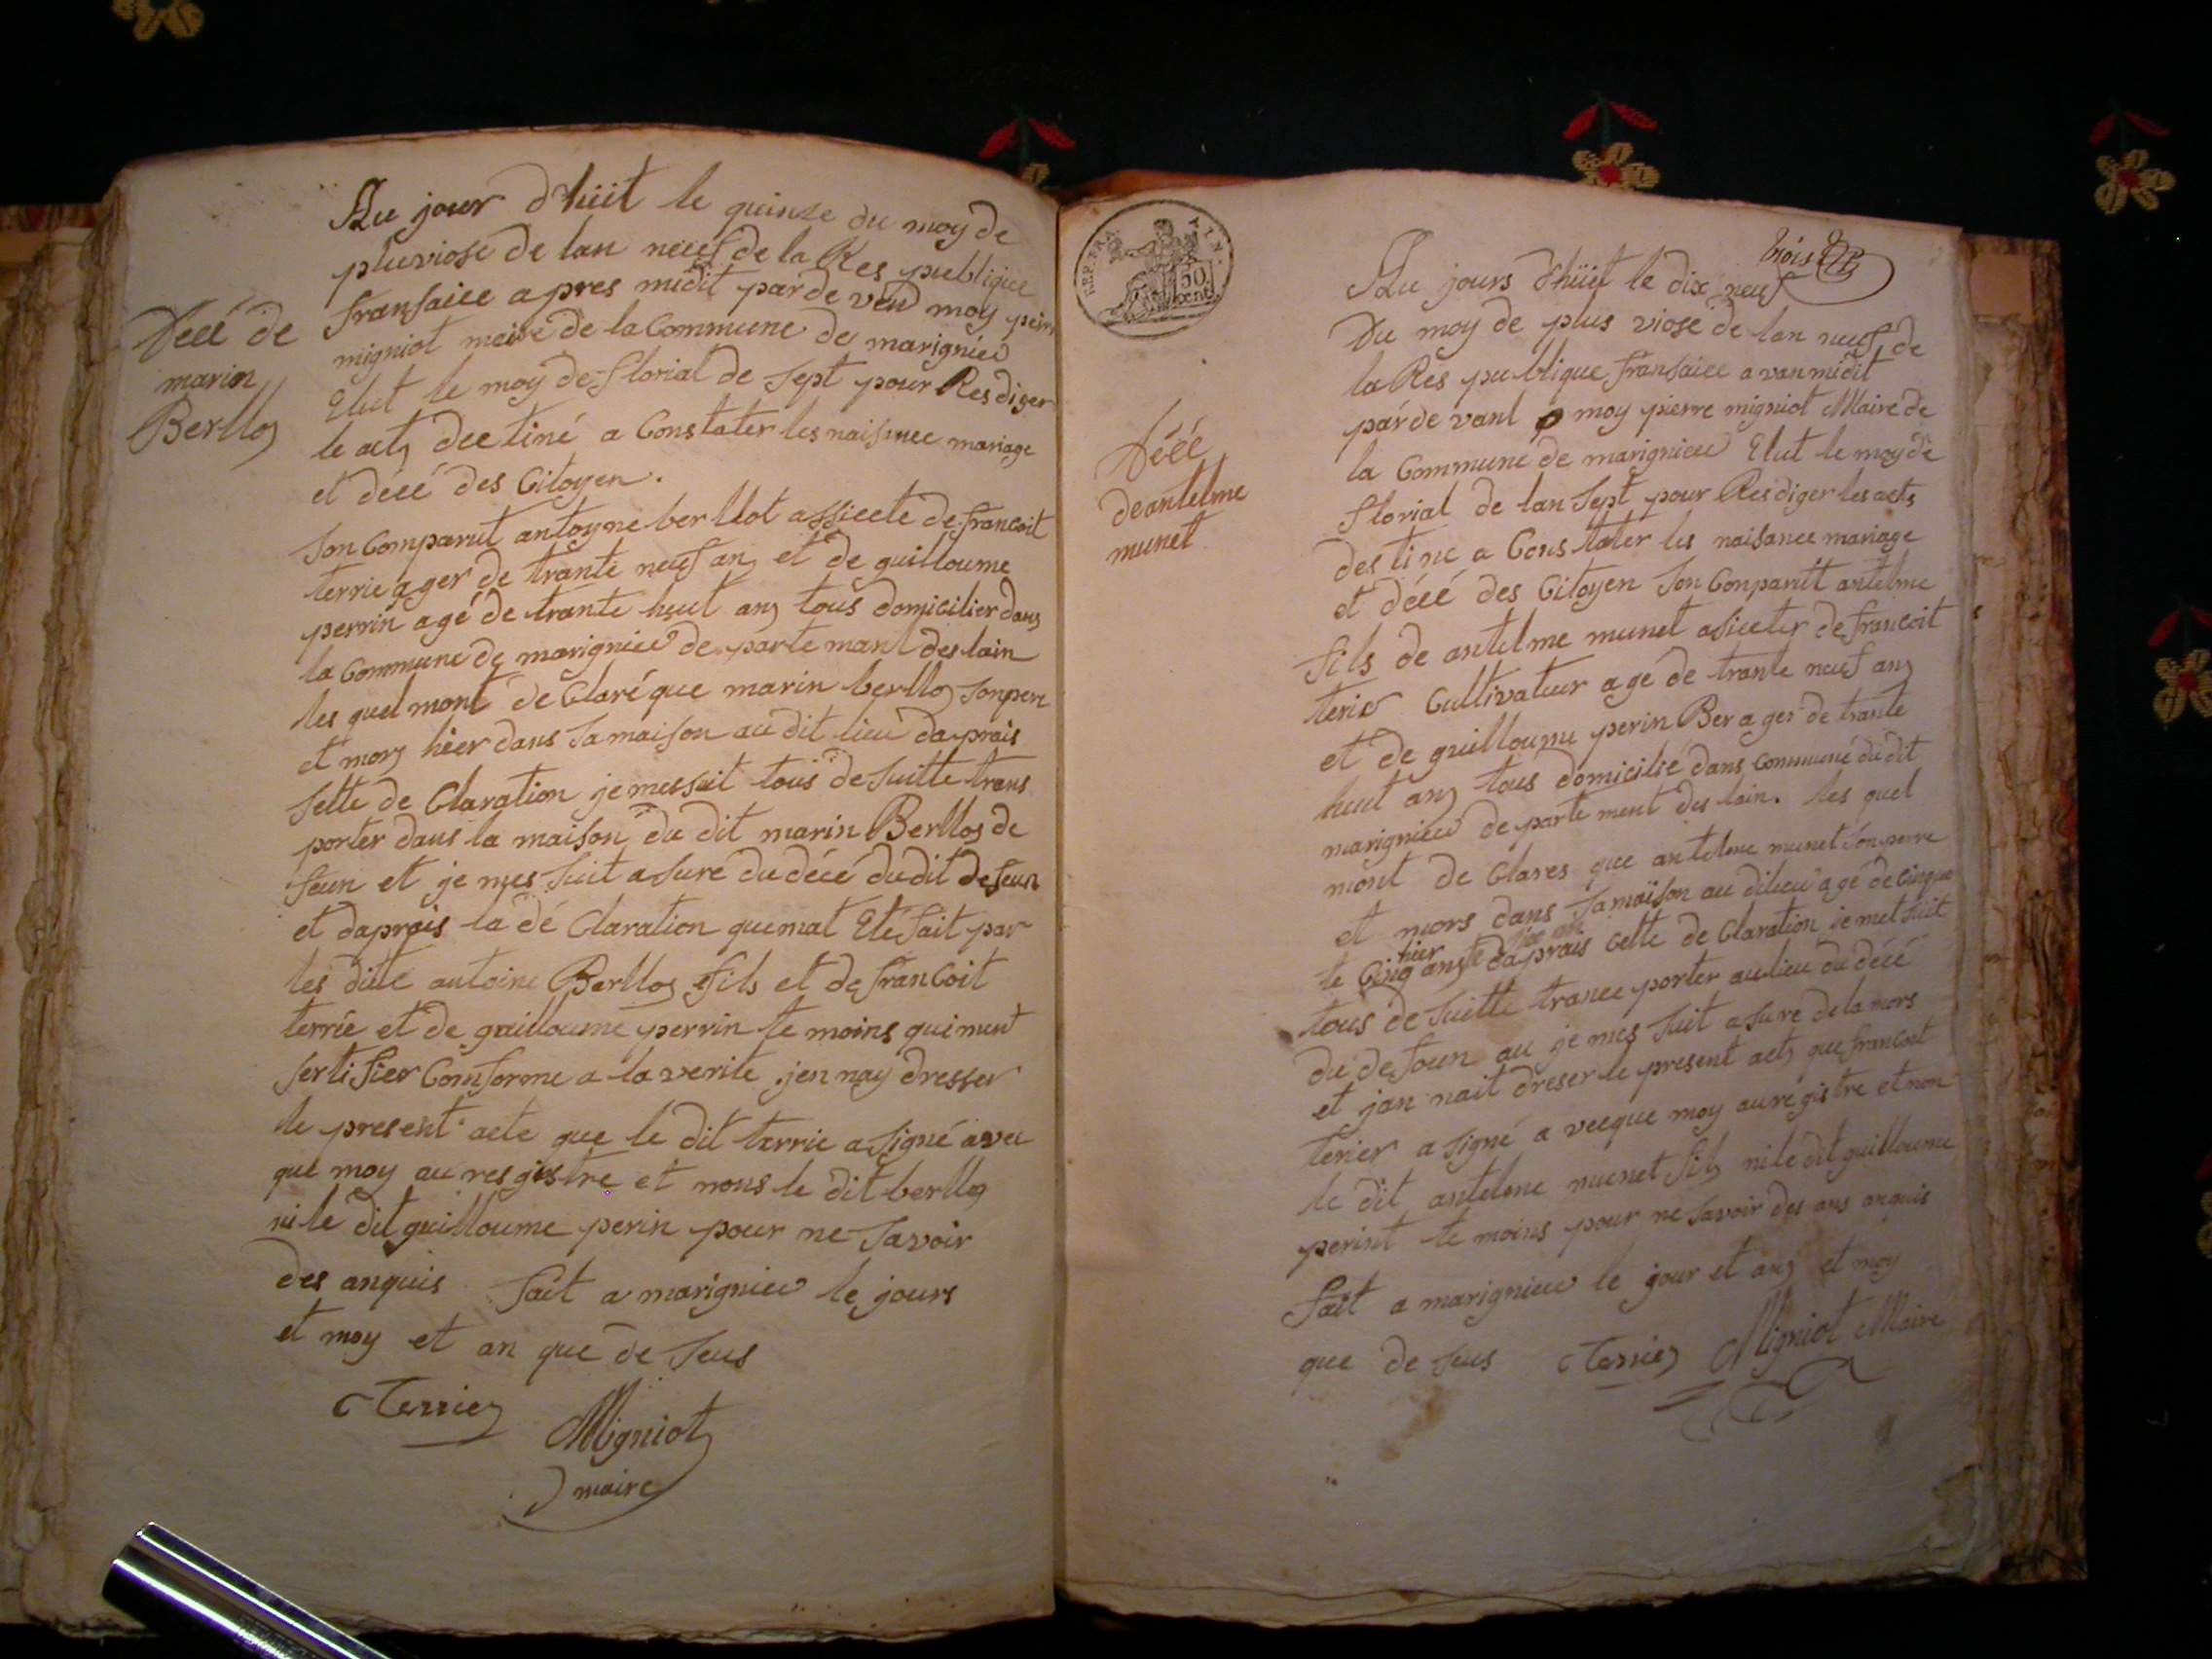 Deéé de
marin
Berlloz
Au jour d'huit le quinze du moy de
pluviose de lan neuf de la Res publique
fransaice apres midit par de vant moy
migniot maire de la Commune de marignieu
Elut le moy de florial de sept pour Resdiger
le acts deetiné a Constater les naisance mariage
et déeé des Citoyen.
Son Comparut antoyne berllot assiecte de francoit
terrie ager de trante neuf anz et de guilloume
perrin agé de trante huit anz tous domicilier dans
la Commune de marignieu de parte mant des lain
les quel mont de Claré que marin berlloz son pere
et morz hier dans sa maison au dit lieu daprais
sette de Claration je messuit tous de suitte trans
porter dans la maison du dit marin Berlloz de
feun et je mes suit asuré du déeé du dit defeun
et daprais la dé Claration quemat Eté fait par
les ditte antoine Berlloz fils et de francoit
terrie et de guilloume perrin te moins qui munt
sertifier Comforme a la verite jen nay dresser
le present acte que le dit terrie a signé avec
que moy au resgistre et nons le dit berlloz
ni le dit guilloume perin pour ne savoir
des anquis fait a marignieu le jours
et moy et an que de seus
Terriez
Migniot
maire
REP. FRA.
50
cent
trois
Deéé
de antelme
munet
Au jours d'huit le dix neuf
Du moy de plus viose de lan neuf de
la Res publique fransaice avan midit
par de vant moy pierre migniot Maire de
la Commune de marignieu Elut le moy de
florial de lan sept pour Resdiger les acts
destine a Constater les naisance mariage
et déeé des Citoyen son Conparut antelme
fils de antelme munet asiecter de francoit
terier Cultivateur agé de trante neuf anz
et de guilloume perin Ber ager de trante
huit anz tous domicilié dans Commune du dit
marignieu de parte ment des lain. les quel
mont de Clares que antelme munet son perre
et mors dans sa maison au dilieu agé de Cinquan
hier
te Cinq ans daprais Cette de Claration je met suit
tous de suitte trance porter au lieu du déeé
du defeun au je mes suit asure de la mors
et jan nait dreser le present acts que francoit
terier a signé a vecque moy au registre et non
le dit antelme munet fils ni le dit guilloume
perint te moins pour ne savoir des ans anquis
fait a marignieu le jour et anz et moy
que de seus Terriez Migniot Maire